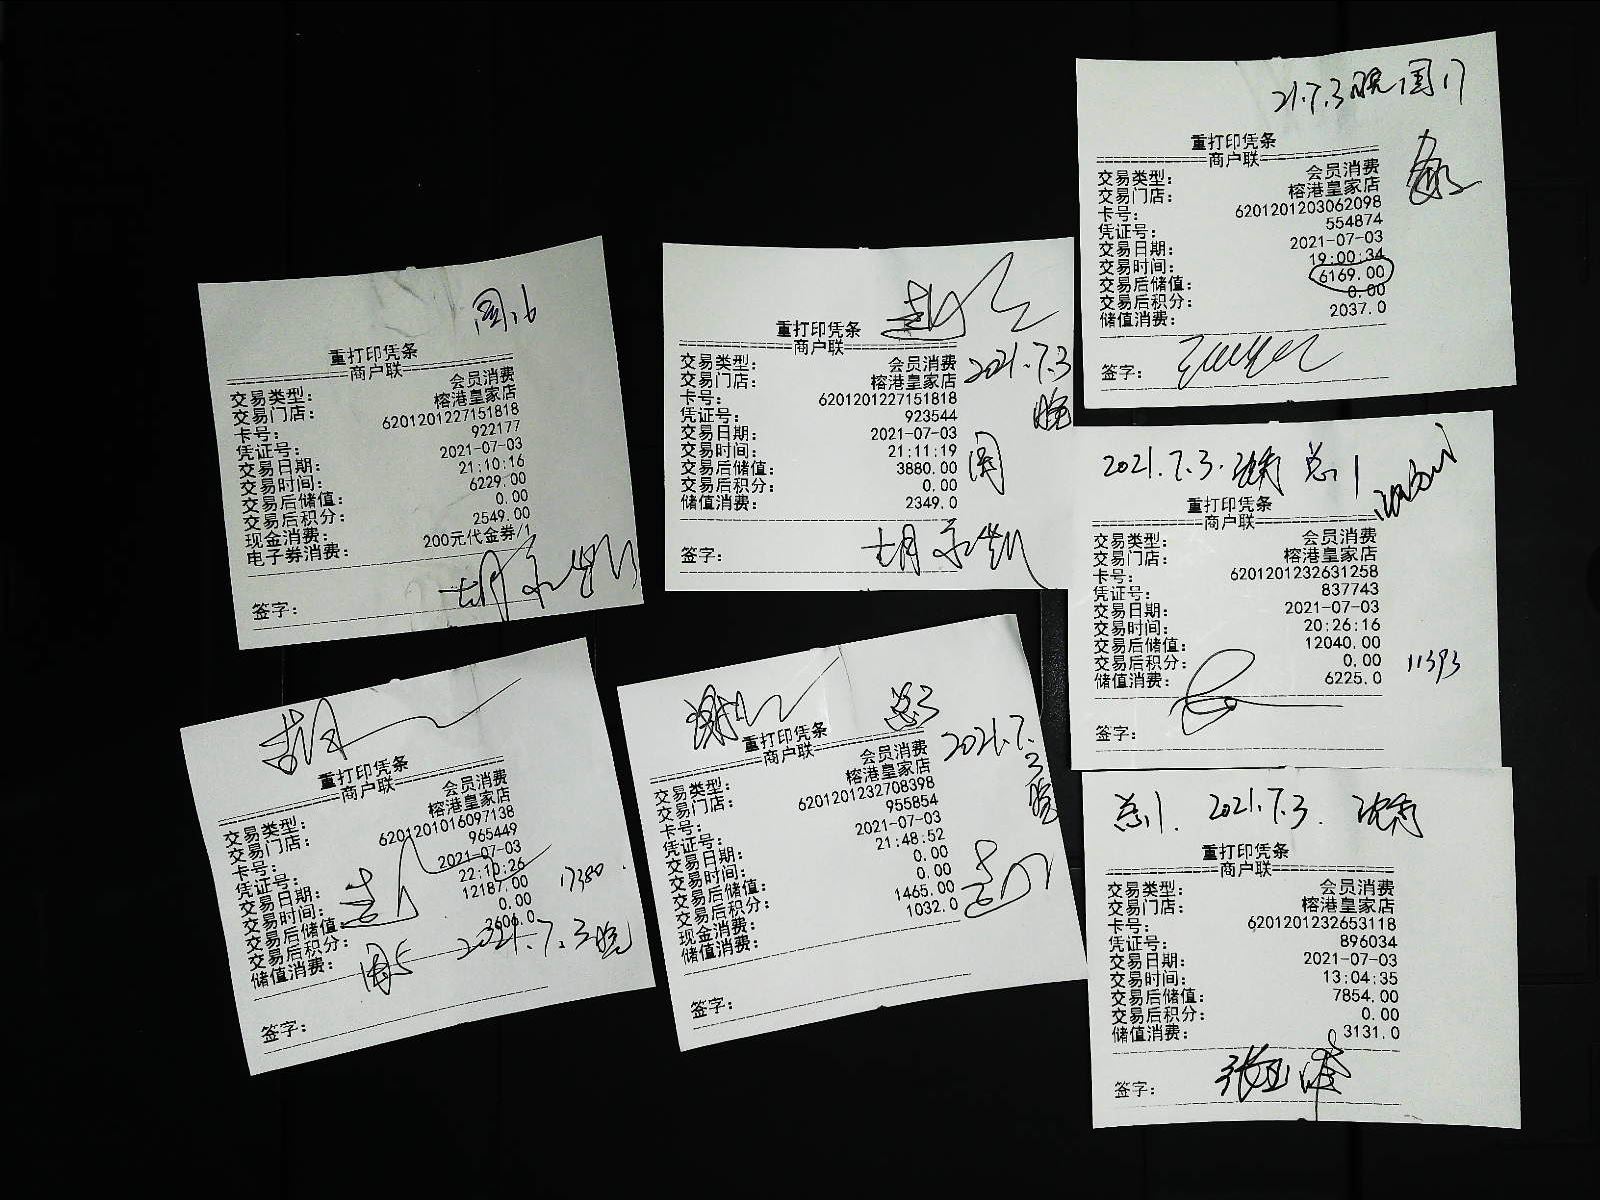 重打印凭条
商户联
交易类型： 会员消费
交易门店： 榕港皇家店
卡号： 6201201227151818
凭证号： 922177
交易日期： 2021-07-03
交易时间： 21:10:16
交易后储值： 6229.00
交易后积分： 0.00
现金消费： 2549.00
电子券消费： 200元代金券/1
签字：
重打印凭条
商户联
交易类型： 会员消费
交易门店： 榕港皇家店
2021.7.3
卡号： 6201201227151818
晚
凭证号： 923544
交易日期： 2021-07-03
交易时间： 21:11:19
交易后储值： 3880.00
交易后积分： 0.00
储值消费： 2349.0
签字：
21.7.3晚
重打印凭条
商户联
交易类型： 会员消费
交易门店： 榕港皇家店
卡号： 6201201203062098
凭证号： 554874
交易日期： 2021-07-03
交易时间： 19:00:34
交易后储值： 6169.00
交易后积分： 0.00
储值消费： 2037.0
签字：
2021.7.3. 总1
重打印凭条
商户联
交易类型： 会员消费
交易门店： 榕港皇家店
卡号： 6201201232631258
凭证号： 837743
交易日期： 2021-07-03
交易时间： 20:26:16
交易后储值： 12040.00
交易后积分： 0.00
11393
储值消费： 6225.0
签字：
重打印凭条
商户联
交易类型： 会员消费
交易门店： 榕港皇家店
卡号： 6201201016097138
凭证号： 965449
交易日期： 2021-07-03
交易时间： 22:10:26
交易后储值： 12187.00
17380
交易后积分： 0.00
储值消费： 3606.0
2021.7.3晚
签字：
总3
重打印凭条
商户联
2021.7.3
晚
交易类型： 会员消费
交易门店： 榕港皇家店
卡号： 6201201232708398
凭证号： 955854
交易日期： 2021-07-03
交易时间： 21:48:52
交易后储值： 0.00
交易后积分： 0.00
现金消费： 1465.00
储值消费： 1032.0
签字：
总1. 2021.7.3.
重打印凭条
商户联
交易类型： 会员消费
交易门店： 榕港皇家店
卡号： 6201201232653118
凭证号： 896034
交易日期： 2021-07-03
交易时间： 13:04:35
交易后储值： 7854.00
交易后积分： 0.00
储值消费： 3131.0
签字：